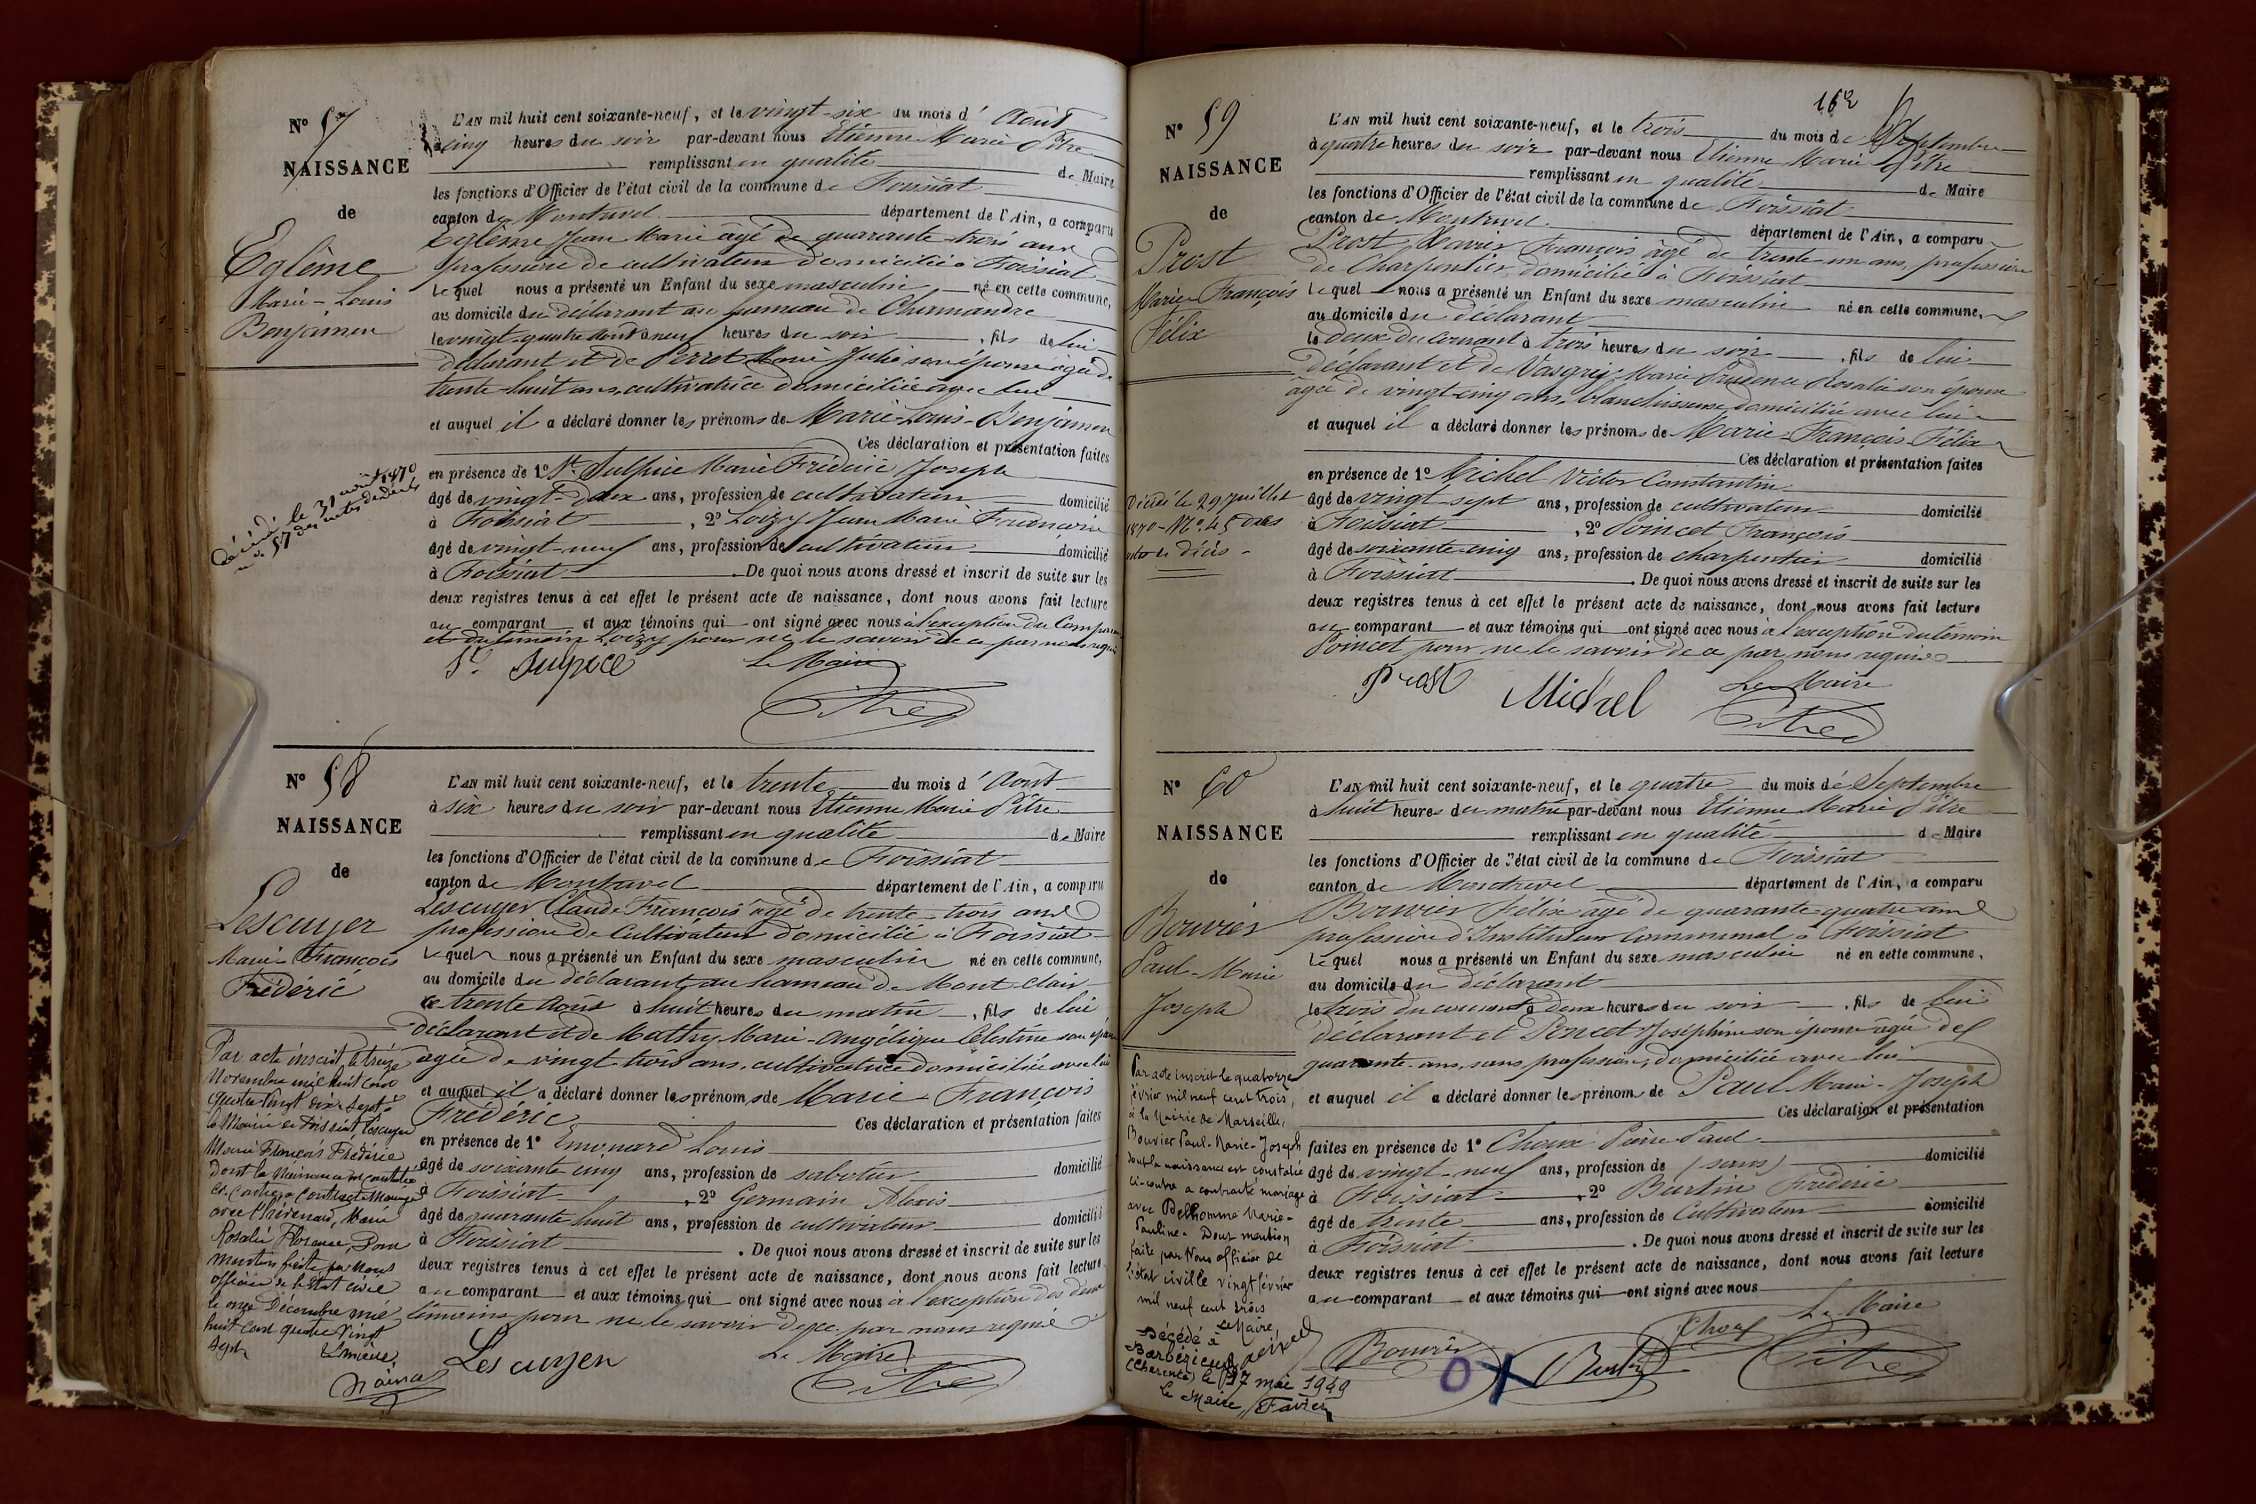 N° 57
NAISSANCE
de
Eglème
Marie-Louis
Benjamin
L'AN mil huit cent soixante-neuf, et le vingt-six du mois d'Août
à cinq heures du soir par-devant nous Etienne Marie Pitre
remplissant en qualité de Maire
les fonctions d'Officier de l'état civil de la commune de Foissiat
canton de Montrevel département de l'Ain, a comparu
Eglème Jean Marie âgé de quarante-trois ans
profession de cultivateur domicilié à Foissiat
lequel nous a présenté un Enfant du sexe masculin né en cette commune,
au domicile du déclarant au hameau de
le vingt-quatre Août à neuf heures du soir, fils de lui
déclarant et de Perret Marie Julie son épouse âgée de
trente-huit ans, cultivatrice domiciliée avec lui
et auquel il a déclaré donner les prénoms de Marie-Louis-Benjamin
Ces déclaration et présentation faites
en présence de 1° St Sulpice Marie Frédéric Joseph
âgé de vingt-deux ans, profession de cultivateur domicilié
à Foissiat, 2° Loizy Jean Marie François
âgé de vingt-neuf ans, profession de cultivateur domicilié
à Foissiat. De quoi nous avons dressé et inscrit de suite sur les
deux registres tenus à cet effet le présent acte de naissance, dont nous avons fait lecture
au comparant et aux témoins qui ont signé avec nous à l'exception du Comparant
et du témoin Loizy pour ne le savoir de ce par nous requis
St Sulpice Le Maire
Pitre
Décédé le 31 1870
n° 57 des actes de décès
N° 58
NAISSANCE
de
Lescuyer
Marie-François
Frédéric
L'AN mil huit cent soixante-neuf, et le trente du mois d'Août
à six heures du soir par-devant nous Etienne Marie Pitre
remplissant en qualité de Maire
les fonctions d'Officier de l'état civil de la commune de Foissiat
canton de Montrevel département de l'Ain, a comparu
Lescuyer Claude François âgé de trente-trois ans
profession de Cultivateur domicilié à Foissiat
lequel nous a présenté un Enfant du sexe masculin né en cette commune,
au domicile du déclarant, au hameau de Mont-clair
le trente Août à huit heures du matin, fils de lui
déclarant et de Mathy Marie-Angélique Célestine son épouse
âgée de vingt trois ans, cultivatrice domiciliée avec lui
et auquel il a déclaré donner les prénoms de Marie-François
Frédéric Ces déclaration et présentation faites
en présence de 1° Emonard Louis
âgé de soixante cinq ans, profession de sabotier domicilié
à Foissiat, 2° Germain Alexis
âgé de quarante huit ans, profession de cultivateur domicilié
à Foissiat. De quoi nous avons dressé et inscrit de suite sur les
deux registres tenus à cet effet le présent acte de naissance, dont nous avons fait lecture
au comparant et aux témoins qui ont signé avec nous à l'exception des deux
témoins pour ne le savoir de ce par nous requis
Lescuyer Le Maire
Pitre
Par acte inscrit le treize
Novembre mil huit cent
quatre-vingt dix-sept à
la Mairie de Foissiat, Lescuyer
Marie François Frédéric
dont la Naissance est constatée
ci-contre a contracté Mariage
avec Thévenard, Marie
Rosalie Florence, Dont
mention faite par Nous
officier de l'état civil
le onze Décembre mil
huit cent quatre vingt
dix sept
162
N° 59
NAISSANCE
de
Prost
Marie-François
Félix
L'AN mil huit cent soixante-neuf, et le trois du mois de Septembre
à quatre heures du soir par-devant nous Etienne Marie Pitre
remplissant en qualité de Maire
les fonctions d'Officier de l'état civil de la commune de Foissiat
canton de Montrevel département de l'Ain, a comparu
Prost Xavier François âgé de trente-un ans, profession
de Charpentier, domicilié à Foissiat
lequel nous a présenté un Enfant du sexe masculin né en cette commune,
au domicile du déclarant
le deux du courant à trois heures du soir, fils de lui
déclarant et de Marie Prudence Rosalie son épouse
âgée de vingt-cinq ans, blanchisseuse, domiciliée avec lui
et auquel il a déclaré donner les prénoms de Marie-François-Félix
Ces déclaration et présentation faites
en présence de 1° Michel Victor Constantin
âgé de vingt sept ans, profession de cultivateur domicilié
à Foissiat, 2° Poincet François
âgé de soixante-cinq ans, profession de charpentier domicilié
à Foissiat. De quoi nous avons dressé et inscrit de suite sur les
deux registres tenus à cet effet le présent acte de naissance, dont nous avons fait lecture
au comparant et aux témoins qui ont signé avec nous à l'exception du témoin
Poincet pour ne le savoir de ce par nous requis
Prost Michel Le Maire
Pitre
Décédé le 29 Juillet
1870 - N° 45 des
actes de décès
N° 60
NAISSANCE
de
Bouvier
Paul-Marie
Joseph
L'AN mil huit cent soixante-neuf, et le quatre du mois de Septembre
à huit heures du matin par-devant nous Etienne Marie Pitre
remplissant en qualité de Maire
les fonctions d'Officier de l'état civil de la commune de Foissiat
canton de Montrevel département de l'Ain, a comparu
Bouvier Félix âgé de quarante-quatre ans
profession d'Instituteur Communal à Foissiat
lequel nous a présenté un Enfant du sexe masculin né en cette commune,
au domicile du déclarant
le trois du courant à deux heures du soir, fils de lui
déclarant et Poncet Joséphine son épouse âgée de
quarante ans, sans profession, domiciliée avec lui
et auquel il a déclaré donner les prénoms de Paul-Marie-Joseph
Ces déclaration et présentation
faites en présence de 1° Choux Pierre Paul
âgé de vingt-neuf ans, profession de (sans) domicilié
à Foissiat, 2° Burtin Frédéric
âgé de trente ans, profession de Cultivateur domicilié
à Foissiat. De quoi nous avons dressé et inscrit de suite sur les
deux registres tenus à cet effet le présent acte de naissance, dont nous avons fait lecture
au comparant et aux témoins qui ont signé avec nous
Bouvier Burtin Choux Le Maire
Pitre
Par acte inscrit le quatorze
février mil neuf cent trois,
à la Mairie de Marseille,
Bouvier Paul-Marie-Joseph
dont la naissance est constatée
ci-contre a contracté mariage
avec Delhomme Marie-
Pauline. Dont mention
faite par Nous officier de
l'état civil le vingt février
mil neuf cent trois
Le Maire,
Décédé à
Barbézieux
(Charente) le 17 mai 1949
le Maire, Favier